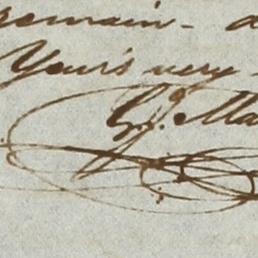 remain - a
Yours very
G. Ma